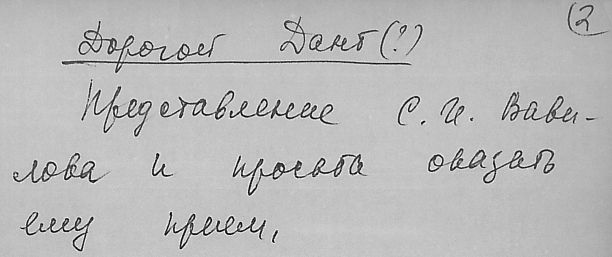 (2
Дорогой Дант(?)
Представление С. И. Вави-
лова и просьба оказать
ему прием,